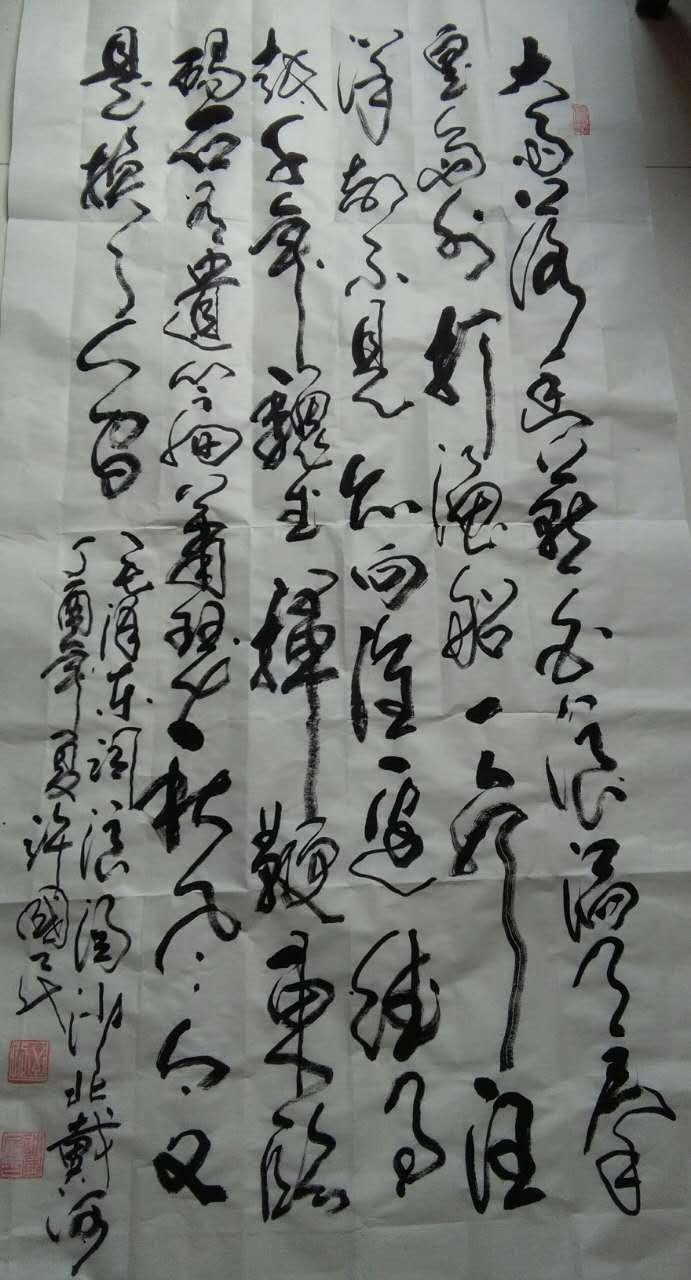 大雨落幽燕白浪滔天秦
皇岛外打漁船一片汪
洋都不見知向谁边往事
越千年魏武揮鞭東臨
碣石有遺篇蕭瑟秋风今又
是换了人间
毛泽东词浪淘沙北戴河
丁酉年夏许國